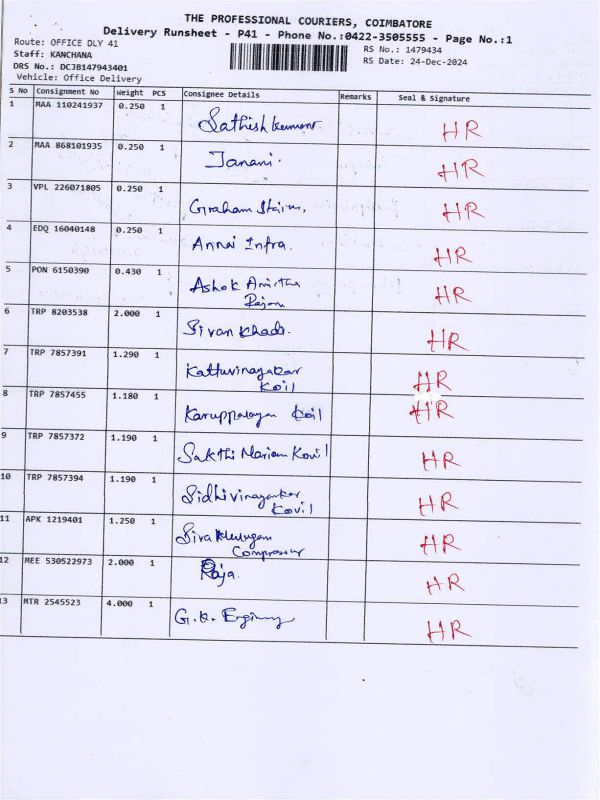 THE PROFESSIONAL COURIERS, COIMBATORE
Delivery Runsheet - P41 - Phone No.:0422-3505555 - Page No.:1
Route: OFFICE DLY 41
RS No.: 1479434
Staff: KANCHANA
RS Date: 24-Dec-2024
DRS No.: DCJB147943401
Vehicle: Office Delivery
S No Consignment No Weight PCS Consignee Details Remarks Seal & Signature
1 MAA 110241937 0.250 1 Sathish kumar. HR
2 MAA 868101935 0.250 1 Janani. HR
3 VPL 226071805 0.250 1 Graham HR
4 EDQ 16040148 0.250 1 Annai Infra. HR
5 PON 6150390 0.430 1 Ashok Amirtha HR
Rajan
6 TRP 8203538 2.000 1 Sivan Khadi. HR
7 TRP 7857391 1.290 1 Kattuvinayakar HR
Koil
8 TRP 7857455 1.180 1 Karuppalayan Koil HR
9 TRP 7857372 1.190 1 Sakthi Mariam Kovil HR
10 TRP 7857394 1.190 1 Sidhivinayakar HR
Kovil
11 APK 1219401 1.250 1 Siva Murugan HR
Compressor
12 MEE 530522973 2.000 1 Raja. HR
13 MTR 2545523 4.000 1 G.K. HR